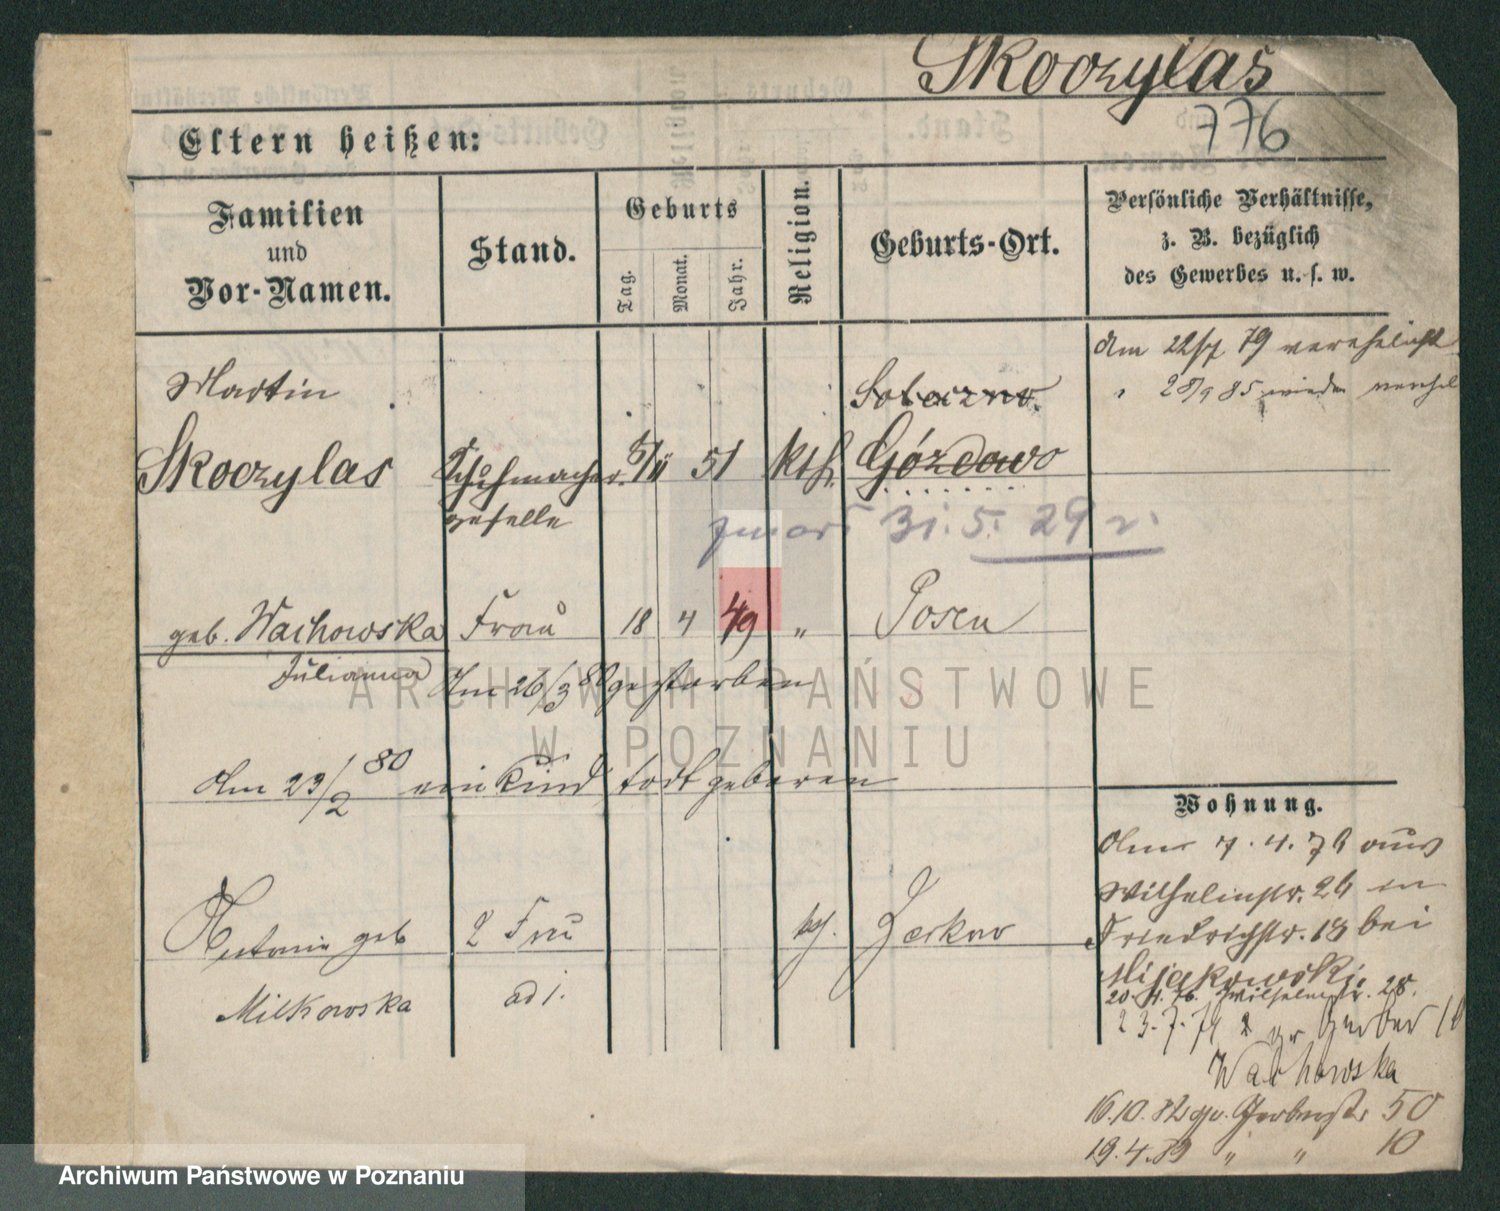 Skoczylas
776
Eltern heißen:
Familien
und
Vor-Namen.
Stand.
Geburts
Tag.
Monat.
Jahr.
Religion.
Geburts-Ort.
Persönliche Verhältnisse,
z. B. bezüglich
des Gewerbes u. s. w.
Am 22/7 79 verehelicht
" 28/9 85 wieder verehel
Martin
Skoczylas
Schuhmacher
geselle
5/11 51 kth.
Góżdowo
zmarł 31. 5. 29 r.
geb. Wachowska Frau 18 4 49 " Posen
Julianna
Am 26/3 80 gestorben
Am 23/2 80 ein Kind todt geboren
Antonie geb 2 Frau kth. Zerkow
Milkowska ad 1.
Wohnung.
Am 7. 4. 76 aus
Wilhelmstr. 26 in
Friedrichstr. 18 bei
Mijakowski.
20. 4. 76. Wilhelmstr. 28.
23. 7. 79 gr Gerber
Wachowska
16.10.82 gr. Gerberstr 50
19.4.89 " " 10
ARCHIWUM PAŃSTWOWE
W POZNANIU
Archiwum Państwowe w Poznaniu